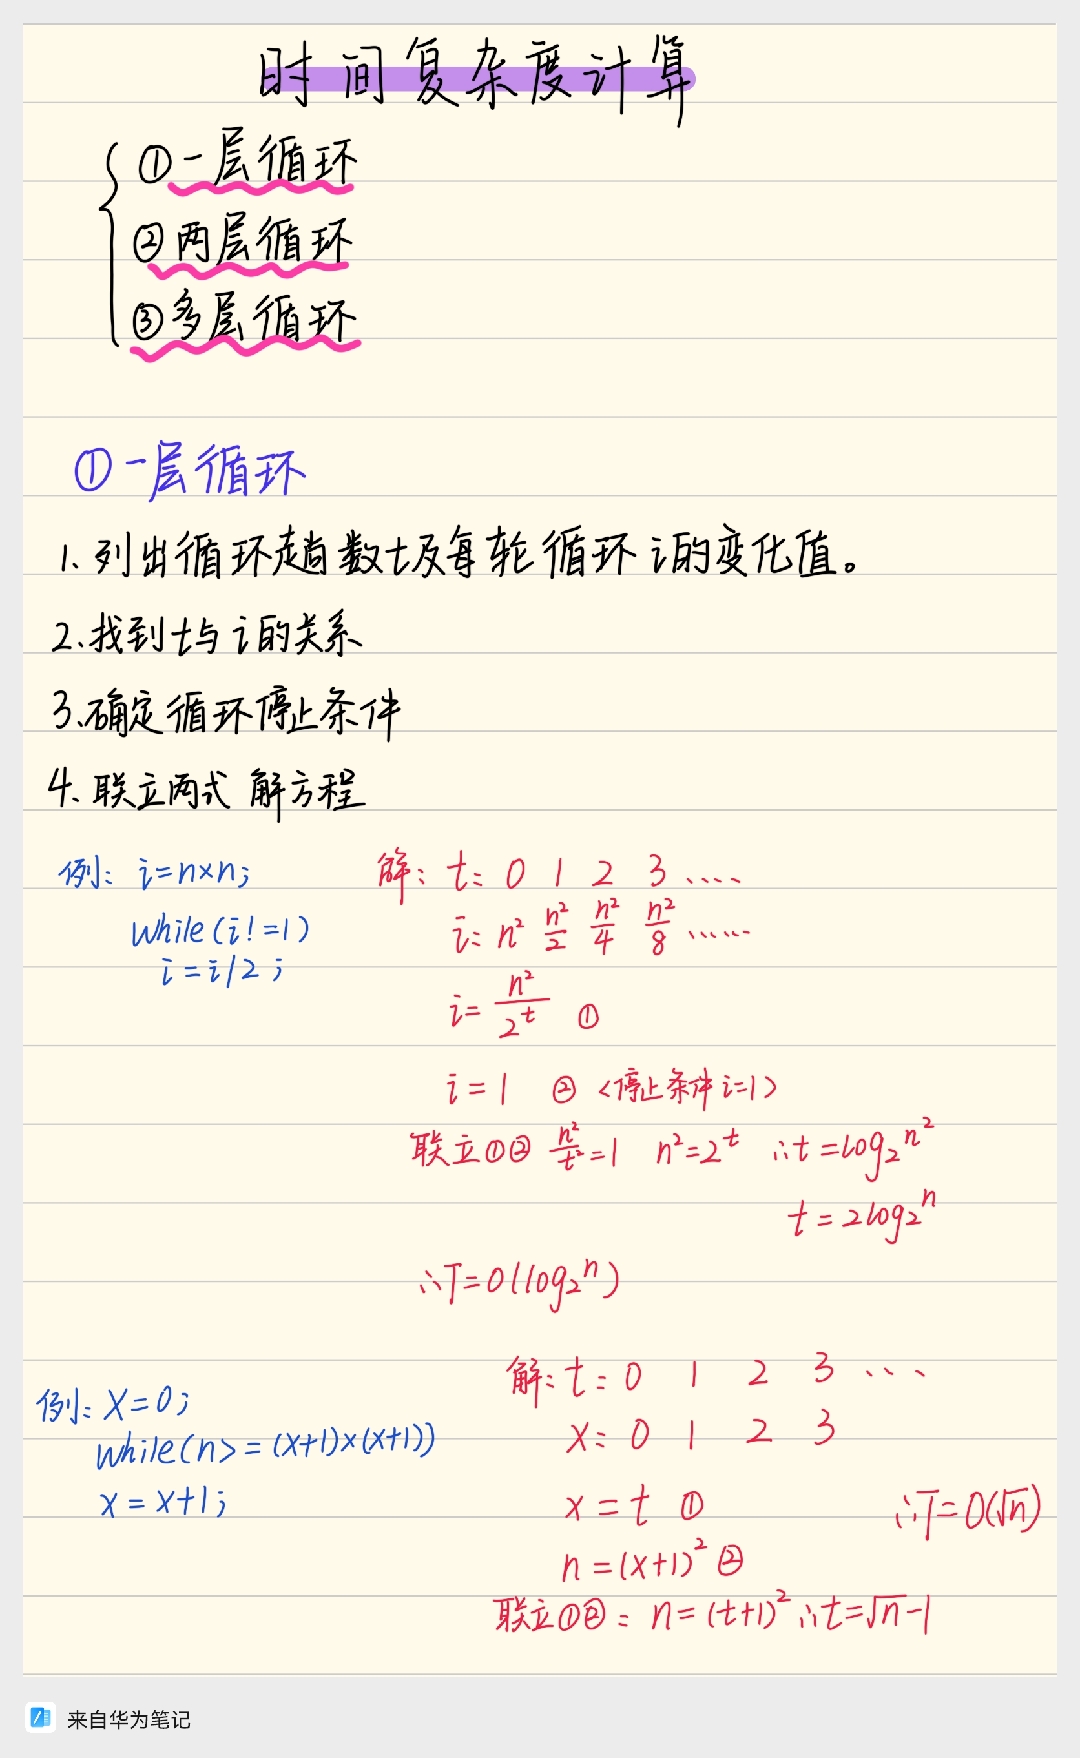 时间复杂度计算
①一层循环
②两层循环
③多层循环
①一层循环
1.列出循环趟数t及每轮循环i的变化值。
2.找到t与i的关系
3.确定循环停止条件
4.联立两式 解方程
例: i=n×n;
while(i!=1)
i=i/2;
解: t: 0 1 2 3 ....
i: n² n²/2 n²/4 n²/8 ......
i= n²/2^t ①
i=1 ② <停止条件i=1>
联立①② n²/t²=1 n²=2^t ∴t=log₂n²
t=2log₂n
∴T=O(log₂n)
例: X=0;
while(n>=(X+1)×(X+1))
x=x+1;
解: t: 0 1 2 3 ...
X: 0 1 2 3
x=t ①
n=(x+1)² ②
联立①②: n=(t+1)² ∴t=√n-1
∴T=O(√n)
来自华为笔记